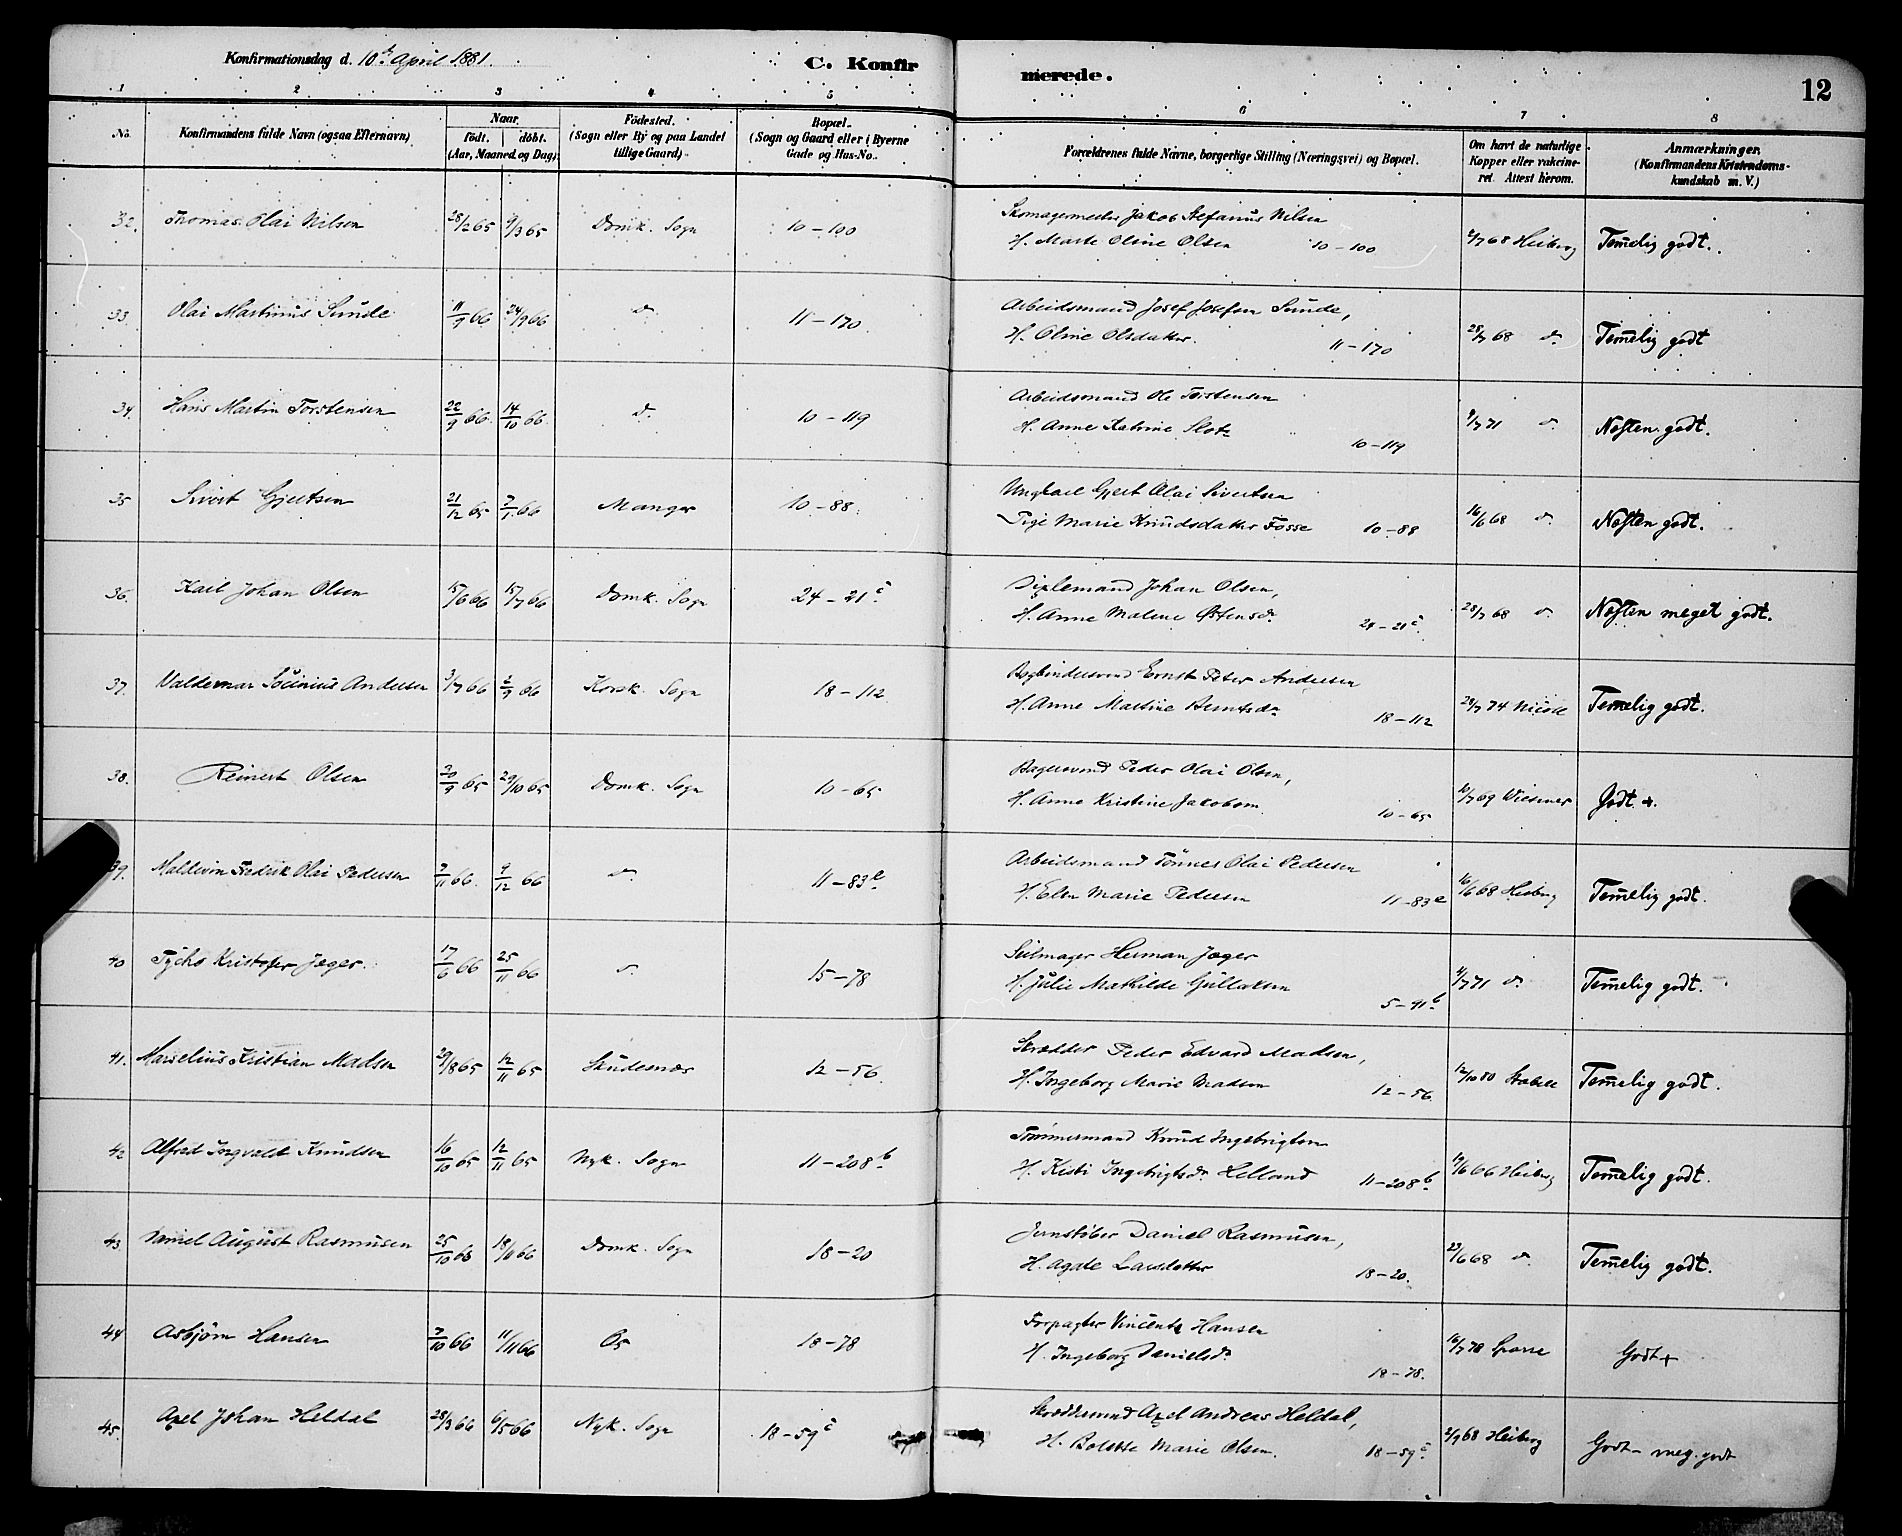 Konfirmationsdag d. 10de April 1881.
C. Konfirmerede.
12
1 2 3 4 5 6 7 8
No. Konfirmandens fulde Navn (ogsaa Efternavn) Naar födt. döbt. (Aar, Maaned og Dag) Födested. (Sogn eller By og paa Landet tillige Gaard) Bopæl. (Sogn og Gaard eller i Byerne Gade og Hus-No. Forældrenes fulde Navne, borgerlige Stilling (Næringsvei) og Bopæl. Om havt de naturlige Kopper eller vakcineret. Attest herom. Anmærkninger. (Konfirmandens Kristendomskundskab m. V.)
32. Thomas Olai Nilsen 28/2 65 9/3 65 Domk. Sogn 10-100 Skomagermester Jakob Stefanus Nilsen
H. Marte Oline Olsen 10-100 68 Heiberg Temelig godt.
33. Olai Martinus Sunde 11/9 66 24/9 66 do 11-170 Arbeidsmand Josef Josefsen Sunde,
H. Oline Olsdatter. 11-170 28/7 68 do Temelig godt
34. Hans Martin Torstensen 22/9 66 14/10 66 do 10-119 Arbeidsmand Ole Torstensen
H. Anne Katrine Slot 10-119 71 do Næsten godt.
35 Sivert Gjertsen 21/12 65 7/1 66 Manger 10-88. Ungkarl Gjert Olai Sivertsen
Pige Marie Knudsdatter Fosse 10-88 16/6 68 do Næsten godt.
36. Karl Johan Olsen 15/6 66 15/7 66 Domk. Sogn 24-21c Johan Olsen,
H. Anne Malene Østensdr 24-21c 28/7 68 do Næsten meget godt.
37. Valdemar Socinius Andersen 3/7 66 2/9 66 Korsk. Sogn 18-112 Bogbindersvend Ernst Peter Andersen
H. Anne Martine Berntsdr 18-112 29/7 74 Nicoll Temelig godt.
38. Reinert Olsen 20/9 65 29/10 65 Domk. Sogn 10-65 Bagersvend Peder Olai Olsen,
H. Anne Kristine Jakobsen 10-65 10/7 69 Wiesener Godt +.
39. Maldevin Fredrik Olai Pedersen 7/11 66. 9/12 66 do 11-83e Arbeidsmand Tönnes Olai Pedersen
H. Elen Marie Pedersen 11-83e 16/6 68 Heiberg Temelig godt.
40 Tycho Kristofer Jæger. 17/6 66 25/11 66 do 15-78 Seilmager Herman Jæger
H. Julie Mathilde Gullaksen 5-41b 71 do Temelig godt.
41. Marselius Kristian Madsen 29/8 65 12/11 65 Skudesnæs 12-56. Skrædder Peder Edvard Madsen,
H. Ingeborg Marie Madsen 12-56. 12/10 80 Stabell Temelig godt.
42 Alfred Ingvald Knudsen 16/10 65 12/11 65 Nyk. Sogn 11-208b Tömmermand Knud Ingebrigtsen
H. Kisti Ingebrigtsdr Helland 11-208b 19/6 66 Heiberg Temelig godt.
43. Daniel August Rasmusen 25/10 66 18/11 66 Domk. Sogn 18-20 Jernstöber Daniel Rasmusen,
H. Agate Larsdatter 18-20. 23/6 68 do Temelig godt.
44 Asbjörn Hansen 7/10 66 11/11 66 Os 18-78 Forpagter Vincents Hansen
H. Ingeborg Danielsdr 18-78. 16/7 78 Godt +
45. Axel Johan Heldal 28/3 66 6/5 66 Nyk. Sogn 18-59c Skræddersvend Axel Andreas Heldal,
H. Bolette Marie Olsen. 18-59c 68 Heiberg Godt - meg. godt